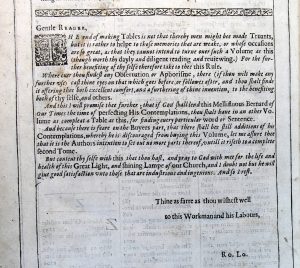 Gentle READER,
THE end of making Tables is not that thereby men might be made Truants,
but it is rather to helpe to those memories that are weake, or whose occasions
are so great, as that they cannot intend to turne over such a Volume as this
(though worth its dayly and diligent reading and reviewing.) For the fur-
ther benefiting of thy selfe therefore take to thee this Rule.
Where ever thou findest any Observation or Aphorisme, there (if thou wilt make any
further use) call thine eyes on that which goes before, or follows after, and thou shalt find
it offering thee both excellent comfort, and a furthering of thine invention, to the benefiting
both of thy selfe, and others.
And this I will promise thee further, that if God shall lend this Mellifluous Bernard of
Our Times the time of perfecting His Contemplations, thou shalt have in an other Vo-
lume as compleat a Table as this, for finding every particular word or Sentence.
And because there is feare on the Buyers part, that there shall bee still additions of his
Contemplations, whereby he is discouraged from buying this Volume, be assured thee that
that it is the Authors intention to set out no more parts thereof, untill it riseth to a compleat
Second Tome.
But content thy selfe with this that thou hast, and pray to God with me for the life and
health of this Great Light, and shining Lampe of our Church, and I doubt not but he will
give good satisfaction unto those that are industrious and ingenious. And so I rest.
Thine as farre as thou wishest well
to this Workman and his Labours,
Ro. Lo.